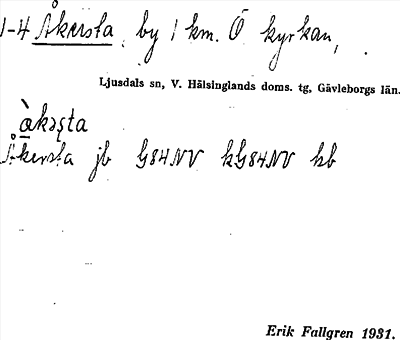 1-4 Åkersta, by 1 km. Ö kyrkan,
Ljusdals sn, V. Hälsinglands doms. tg, Gävleborgs län.
àkəṣta
Åkersta jb G84NV kG84NV kb
Erik Fallgren 1931.